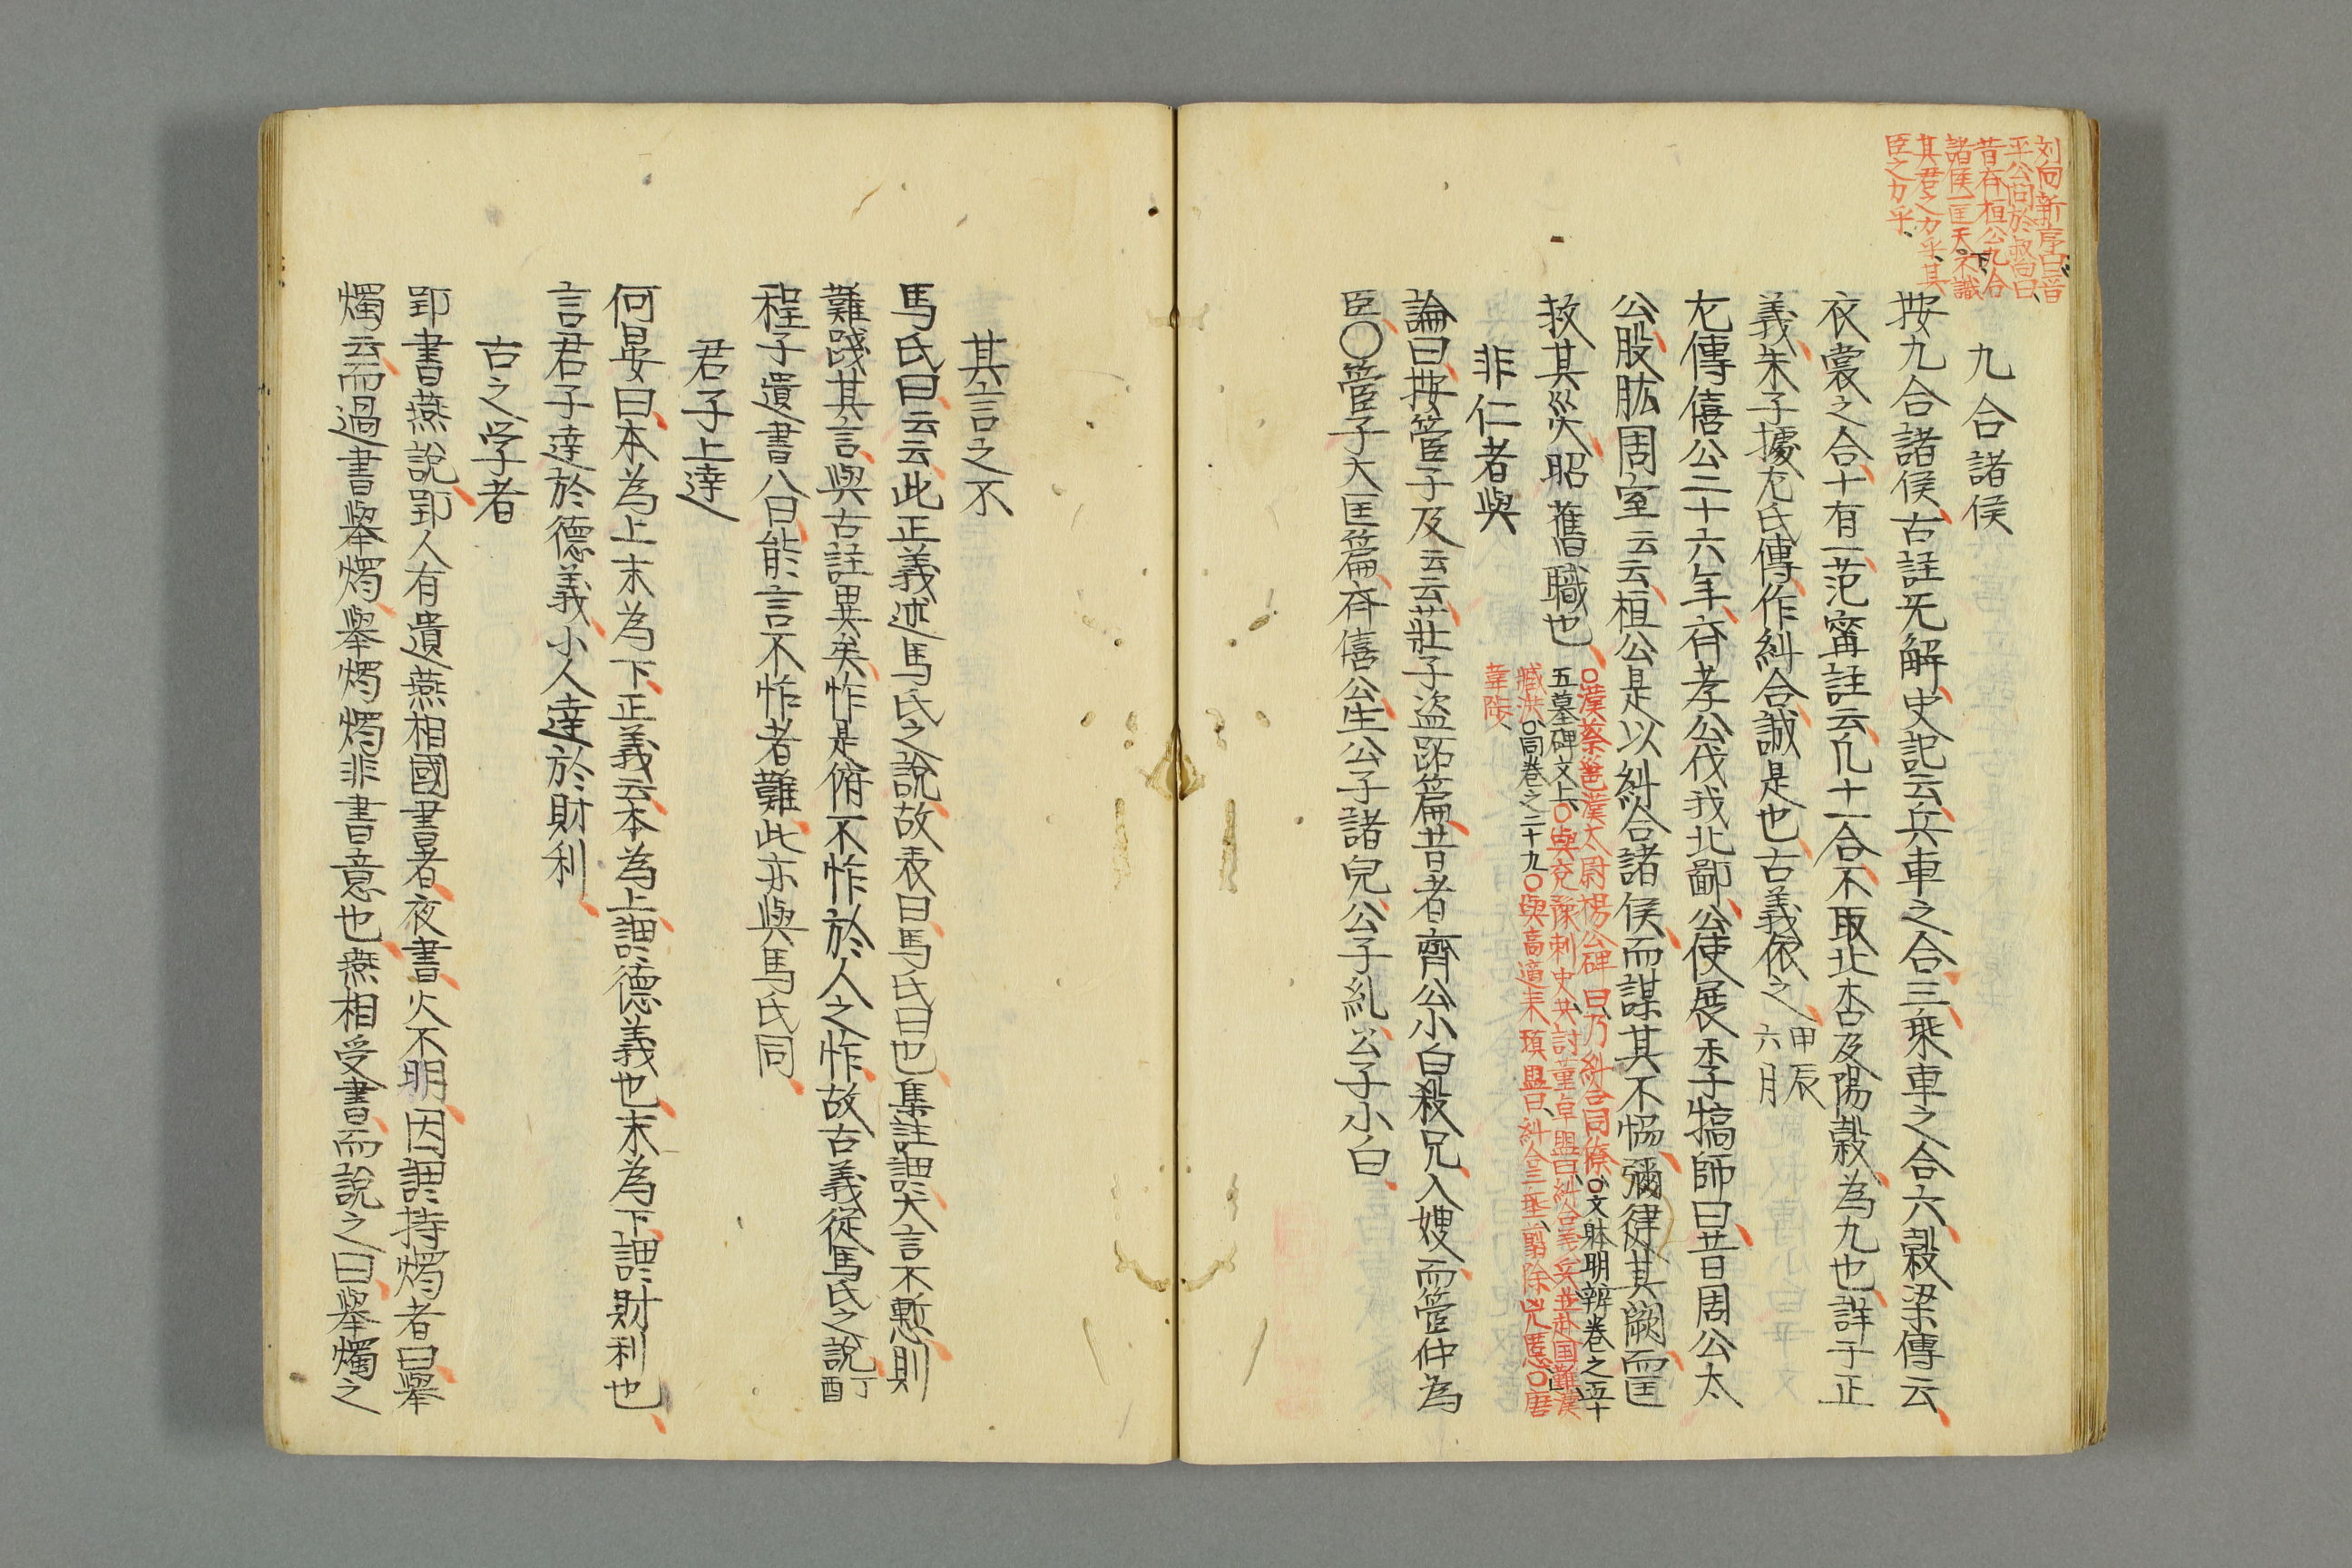 刘向新序曰晉
平公問於叔向曰
昔齐桓公九合
諸侯一匡天下不識
其君之力乎其
臣之力乎
九合諸侯
按九合諸侯古註旡解史記云兵車之合三乘車之合六穀梁傳云
衣裳之合十有一范甯註云凡十一合不取北杏及陽穀為九也詳于正
義朱子據左氏傳作糾合誠是也古義依之甲辰
六月
左傳僖公二十六年齐孝公伐我北鄙公使展禾子犒師曰昔周公太
公股肱周室云云桓公是以糾合諸侯而謀其不恊彌縫其闕而匡
救其災昭舊職也
〇漢蔡邕漢太尉楊公碑曰乃糾合同僚〇文躰明辨卷之五十
五墓碑文上〇與兗豫刺史共討董卓盟曰糾合義兵並赴国難漢
臧洪〇同卷之二十九〇與高適 曰糾合三 翦除凶慝〇唐
韋陟
非仁者與
論曰按管子及云云莊子盜跖篇昔者齊公小白殺兄入嫂而管仲為
臣〇管子大匡篇齐僖公生公子諸兒公子糺公子小白
其言之不
馬氏曰云云此正義述馬氏之說故表曰馬氏曰也集註謂大言不慙則
難踐其言與古註異矣怍是俯不怍於人之怍故古義從馬氏之說丁
酉
程子遺書八曰能言不怍者難此亦與馬氏同
君子上達
何晏曰本為上末為下正義云本為上謂德義也末為下謂財利也
言君子達於德義小人達於財利
古之学者
郢書燕說郢人有遺燕相國書者夜書火不明因謂持燭者曰舉
燭云而過書舉燭舉燭燭非書意也燕相受書而說之曰舉燭之